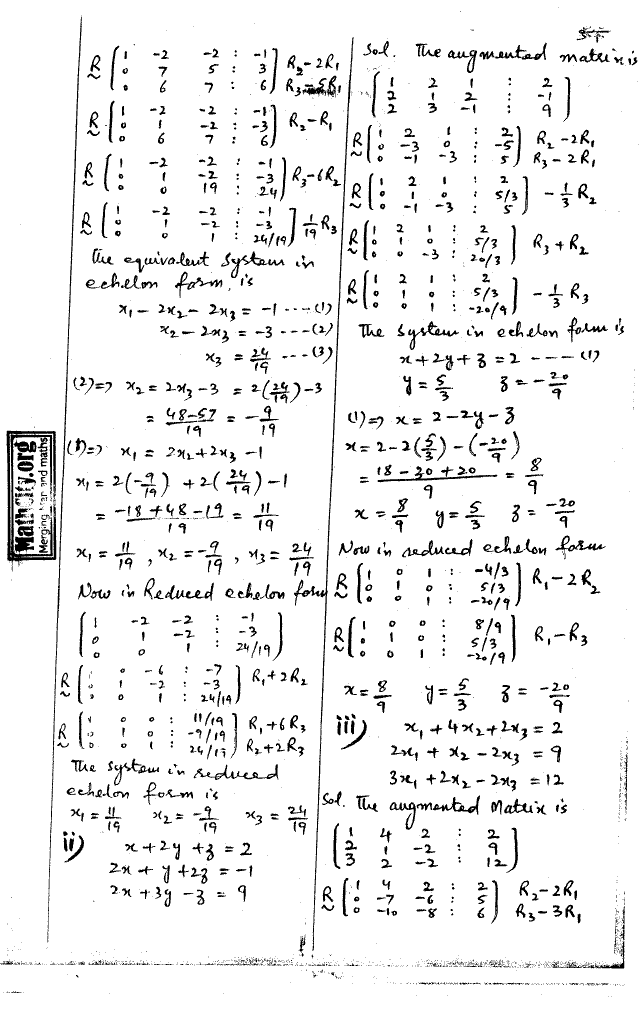 R ~ [ 1 -2 -2 : -1
0 7 5 : 3
0 6 7 : 6 ] R₂-2R₁ R₃-5R₁
R ~ [ 1 -2 -2 : -1
0 1 -2 : -3
0 6 7 : 6 ] R₂-R₁
R ~ [ 1 -2 -2 : -1
0 1 -2 : -3
0 0 19 : 24 ] R₃-6R₂
R ~ [ 1 -2 -2 : -1
0 1 -2 : -3
0 0 1 : 24/19 ] 1/19 R₃
The equivalent system in
echelon form, is
x₁ - 2x₂ - 2x₃ = -1 ---- (1)
x₂ - 2x₃ = -3 --- (2)
x₃ = 24/19 --- (3)
(2) => x₂ = 2x₃ - 3 = 2(24/19) - 3
= 48-57/19 = -9/19
(1) => x₁ = 2x₂ + 2x₃ - 1
x₁ = 2(-9/19) + 2(24/19) - 1
= -18+48-19/19 = 11/19
x₁ = 11/19 , x₂ = -9/19 , x₃ = 24/19
Now in Reduced echelon form
[ 1 -2 -2 : -1
0 1 -2 : -3
0 0 1 : 24/19 ]
R ~ [ 1 0 -6 : -7
0 1 -2 : -3
0 0 1 : 24/19 ] R₁+2R₂
R ~ [ 1 0 0 : 11/19
0 1 0 : -9/19
0 0 1 : 24/19 ] R₁+6R₃ R₂+2R₃
The system in reduced
echelon form is
x₁ = 11/19 x₂ = -9/19 x₃ = 24/19
ii) x + 2y + z = 2
2x + y + 2z = -1
2x + 3y - z = 9
MathCity.org
Merging man and maths
Sol. The augmented matrix is
[ 1 2 1 : 2
2 1 2 : -1
2 3 -1 : 9 ]
R ~ [ 1 2 1 : 2
0 -3 0 : -5
0 -1 -3 : 5 ] R₂-2R₁ R₃-2R₁
R ~ [ 1 2 1 : 2
0 1 0 : 5/3
0 -1 -3 : 5 ] -1/3 R₂
R ~ [ 1 2 1 : 2
0 1 0 : 5/3
0 0 -3 : 20/3 ] R₃+R₂
R ~ [ 1 2 1 : 2
0 1 0 : 5/3
0 0 1 : -20/9 ] -1/3 R₃
The system in echelon form is
x + 2y + z = 2 ---- (1)
y = 5/3 z = -20/9
(1) => x = 2 - 2y - z
x = 2 - 2(5/3) - (-20/9)
= 18-30+20/9 = 8/9
x = 8/9 y = 5/3 z = -20/9
Now in reduced echelon form
R ~ [ 1 0 1 : -4/3
0 1 0 : 5/3
0 0 1 : -20/9 ] R₁-2R₂
R ~ [ 1 0 0 : 8/9
0 1 0 : 5/3
0 0 1 : -20/9 ] R₁-R₃
x = 8/9 y = 5/3 z = -20/9
iii) x₁ + 4x₂ + 2x₃ = 2
2x₁ + x₂ - 2x₃ = 9
3x₁ + 2x₂ - 2x₃ = 12
Sol. The augmented Matrix is
[ 1 4 2 : 2
2 1 -2 : 9
3 2 -2 : 12 ]
R ~ [ 1 4 2 : 2
0 -7 -6 : 5
0 -10 -8 : 6 ] R₂-2R₁ R₃-3R₁